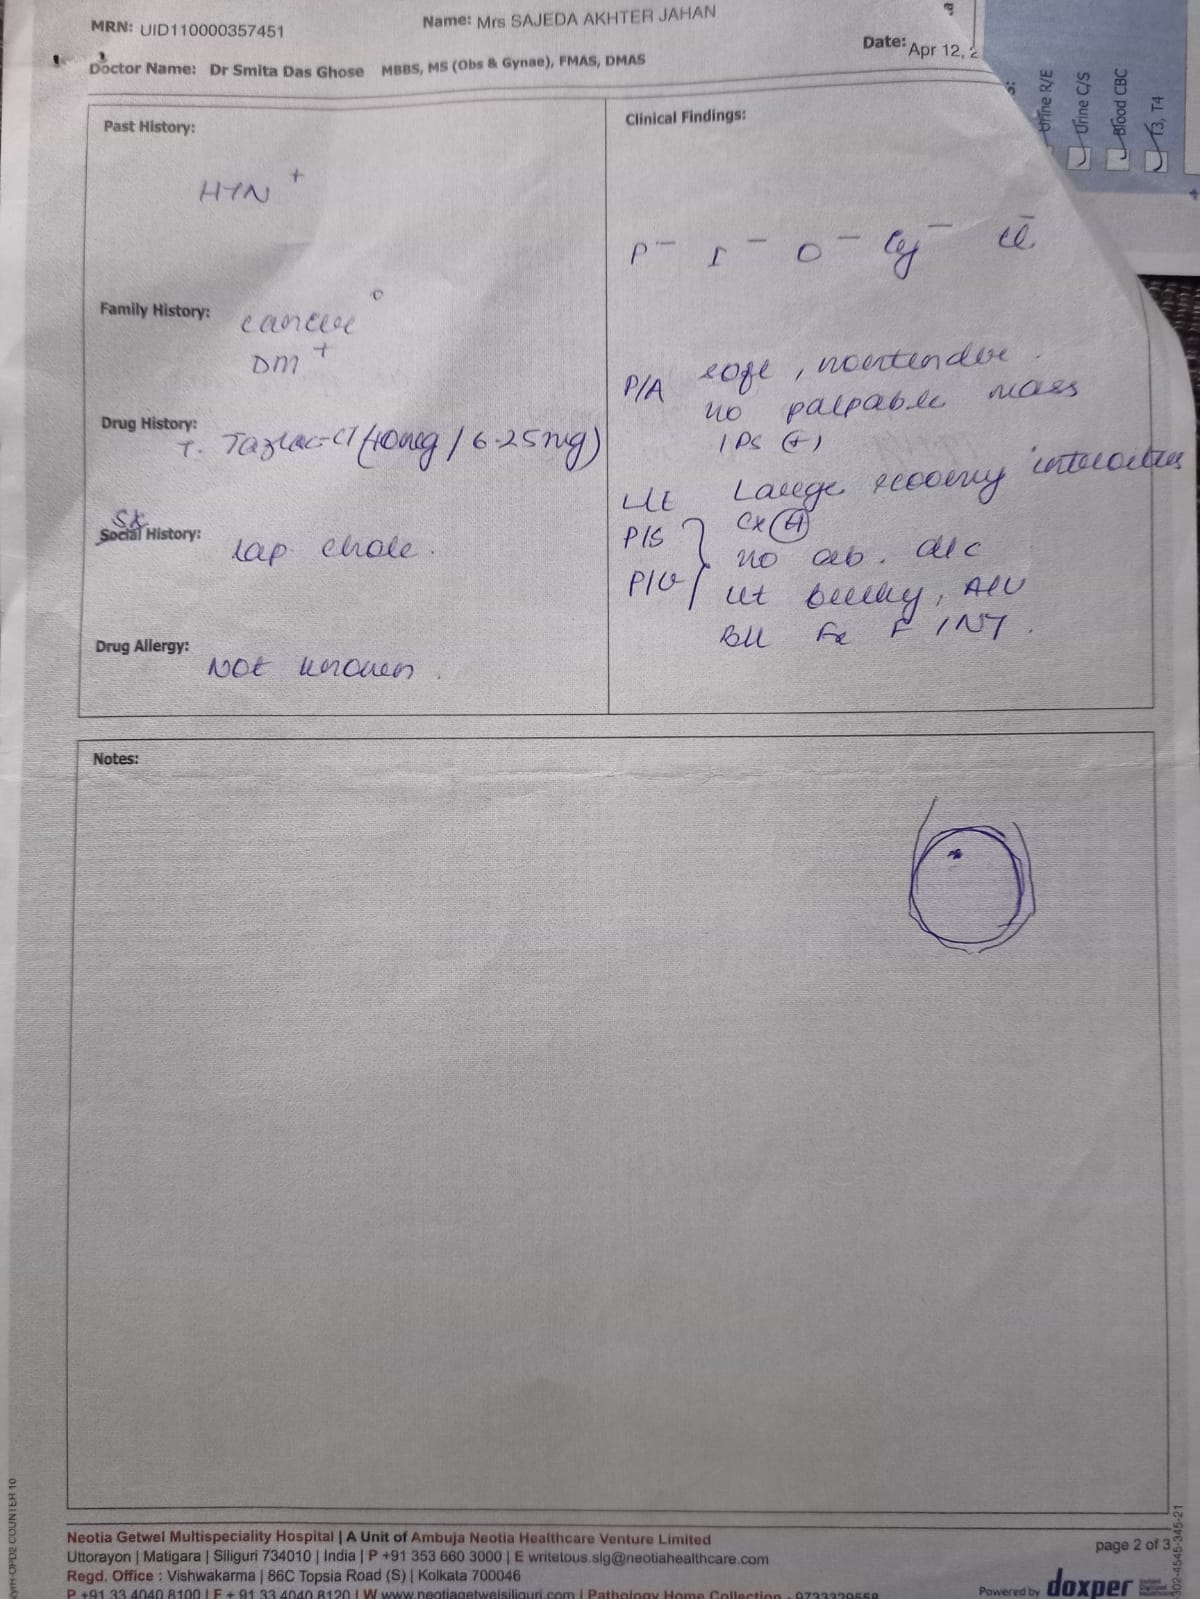 MRN: UID110000357451
Name: Mrs SAJEDA AKHTER JAHAN
Date: Apr 12, 2
Doctor Name: Dr Smita Das Ghose MBBS, MS (Obs & Gynae), FMAS, DMAS
Urine R/E
Urine C/S
Blood CBC
T3, T4
Past History:
HTN +
Family History:
cancer o
DM +
Drug History:
T. Tazloc-CT (40mg / 6.25mg)
Sx
Social History:
Lap chole.
Drug Allergy:
Not known.
Clinical Findings:
P - I - O - Cy - Cl -
P/A soft, nontender.
no palpable mass
IPS (+)
Large
P/S Cx
P/V no ab. d/c
Ut bulky,
B/L Fx F / NT.
Notes:
Neotia Getwel Multispeciality Hospital | A Unit of Ambuja Neotia Healthcare Venture Limited
Uttorayon | Matigara | Siliguri 734010 | India | P +91 353 660 3000 | E writetous.slg@neotiahealthcare.com
Regd. Office : Vishwakarma | 86C Topsia Road (S) | Kolkata 700046
P +91 33 4040 8100 | F + 91 33 4040 8120 | W www.neotiagetwelsiliguri.com | Pathology Home Collection - 9733329558
page 2 of 3
Powered by doxper
302-4545-345-21
OPD2 COUNTER 10